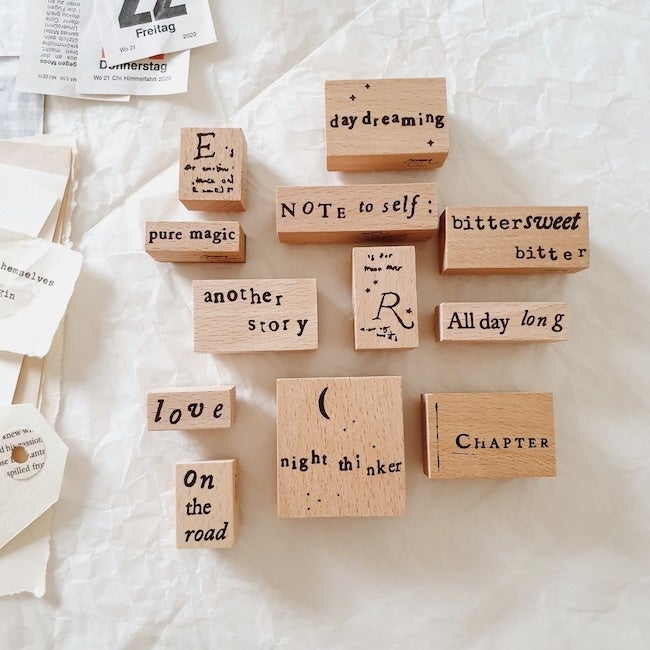 22
Freitag
Wo 21
2020
Donnerstag
Wo 21 Chr. Himmelfahrt 2020
day dreaming
E
NOTE to self:
pure magic
bittersweet
bitter
is for
R
another
story
All day long
hemselves
gin
love
night thinker
CHAPTER
knew w
his passion
spilled fro
On
the
road